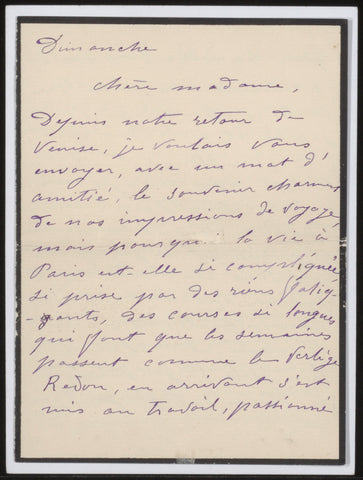 Dimanche
chère madame,
Depuis notre retour de
Venise, je voulais vous
envoyer, avec un mot d'
amitié, le souvenir charmeur
de nos impressions de voyage
mais pourquoi la vie à
Paris est-elle si compliquée
si prise par des riens fatig-
-uants, des courses si longues
qui font que les semaines
passent comme le vertige
Redon, en arrivant s'est
mis au travail, passionné